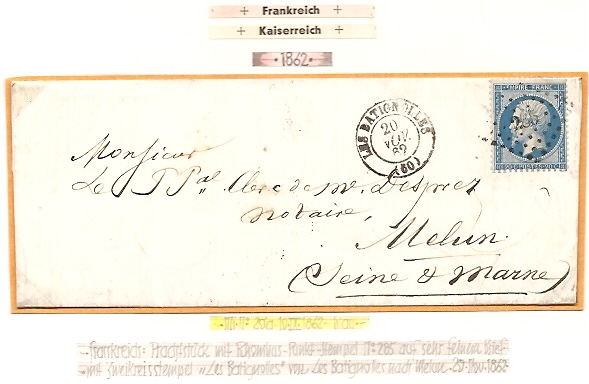 + Frankreich +
+ Kaiserreich +
·1862·
EMPIRE FRANC
LES BATIGNOLLES
20
NOV.
62
(60)
20 C POSTES 20 C
Monsieur
Le Pal Clerc de Mr. Desprez
notaire,
Melun
(Seine & Marne)
1862
Frankreich - Prachtstück mit Rhombus-Punkt-Stempel N° 285 auf sehr feinem Brief
mit Zweikreisstempel "Les Batignolles" von Les Batignolles nach Melun 20. Nov. 1862